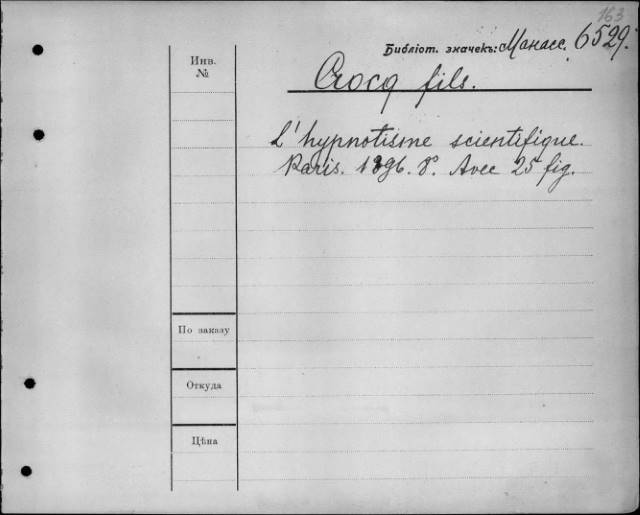 163
Библіот. значекъ: Манасс. 6529.
Инв.
№
Crocq fils.
L'hypnotisme scientifique.
Paris. 1896. 8°. Avec 25 fig.
По заказу
Откуда
Цѣна